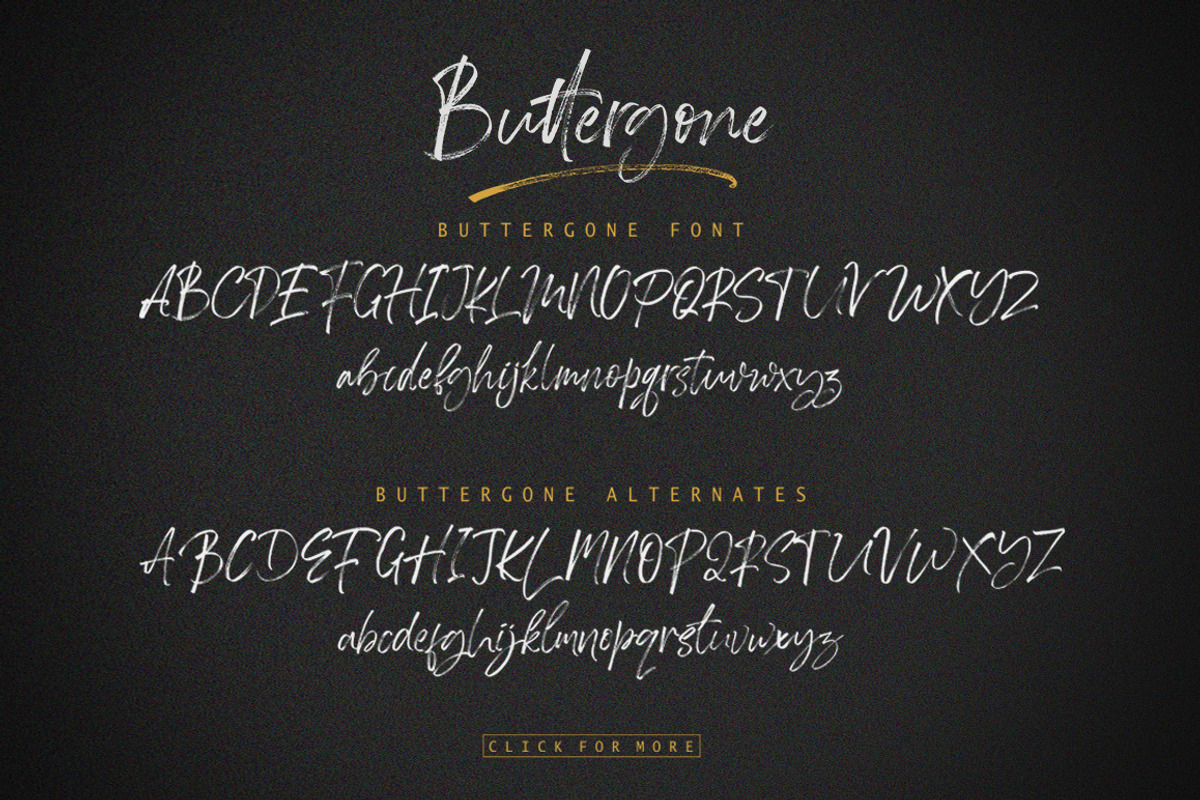 Buttergone
BUTTERGONE FONT
ABCDEFGHIJKLMNOPQRSTUVWXYZ
abcdefghijklmnopqrstuvwxyz
BUTTERGONE ALTERNATES
ABCDEFGHIJKLMNOPQRSTUVWXYZ
abcdefghijklmnopqrstuvwxyz
CLICK FOR MORE